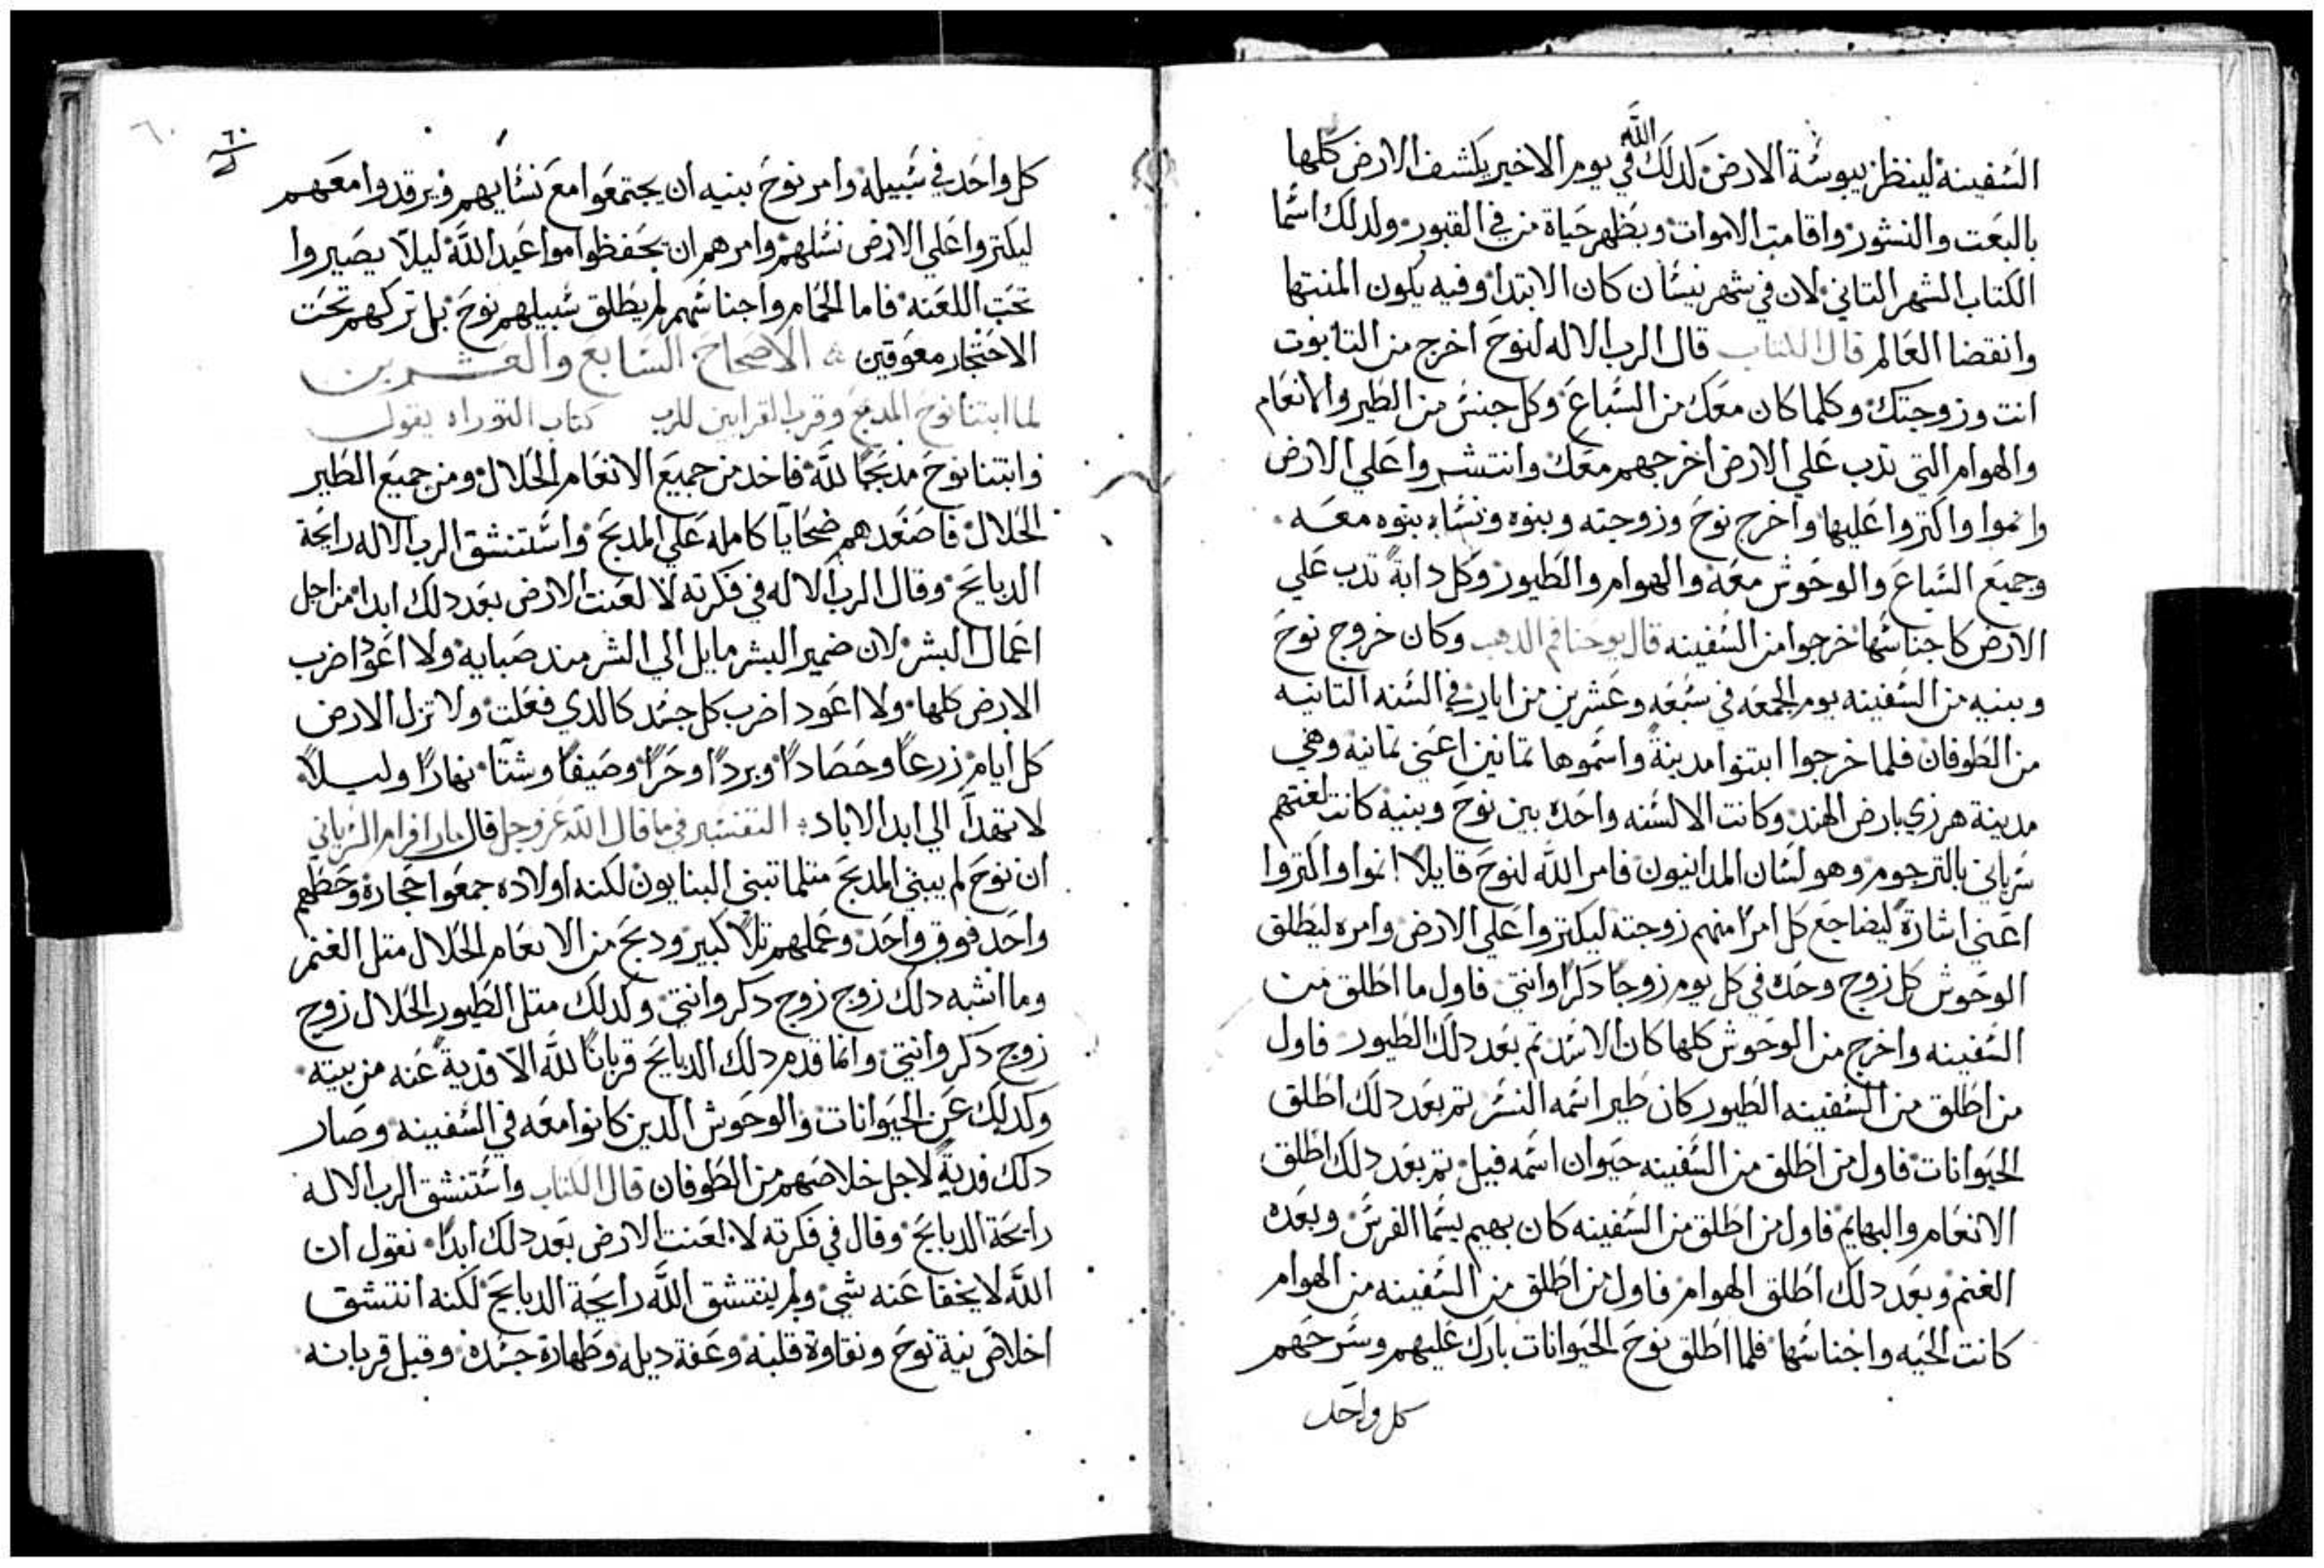 السفينة لينظر يبوسة الارض لدلك الله في يوم الاخير يكشف الارض كلها
بالبعت والنشور واقامت الاموات ويظهر حياة من في القبور ولدلك اسما
الكتاب الشهر التاني لان في شهر نيسان كان الابتدا وفيه يكون المنتها
وانقضا العالم قال الكتاب قال الرب الاله لنوح اخرج من التابوت
انت وزوجتك وكلما كان معك من السباع وكل جنس من الطير والانعام
والهوام التي تدب علي الارض اخرجهم معك وانتشروا علي الارض
وانموا واكتروا عليها واخرج نوح وزوجته وبنوه ونساء بنوه معه
وجميع السباع والوحوش معه والهوام والطيور وكل دابة تدب علي
الارض كاجناسها خرجوا من السفينه قال يوحنا فم الدهب وكان خروج نوح
وبنيه من السفينه يوم الجمعه في سبعه وعشرين من ايار في السنه التانيه
من الطوفان فلما خرجوا ابتنوا مدينة واسموها تمانين اعني تمانيه وهي
مدينة هرزي بارض الهند وكانت الالسنه واحده بين نوح وبنيه كانت لغتهم
سرياني بالترجوم وهو لسان المدانيون فامر الله لنوح قايلا انموا واكتروا
اعني اشارة ليضاجع كل امرا منهم زوجته ليكتروا علي الارض وامره ليطلق
الوحوش كل زوج وحده في كل يوم زوجا دكرا وانتي فاول ما اطلق من
السفينه واخرج من الوحوش كلها كان الاسد تم بعد دلك الطيور فاول
من اطلق من السفينه الطيور كان طير اسمه النسر تم بعد دلك اطلق
الحيوانات فاول من اطلق من السفينه حيوان اسمه فيل تم بعد دلك اطلق
الانعام والبهايم فاول من اطلق من السفينه كان بهيم يسما الفرس وبعده
الغنم وبعد دلك اطلق الهوام فاول من اطلق من السفينه من الهوام
كانت الحيه واجناسها فلما اطلق نوح الحيوانات بارك عليهم وسرحهم
كل واحد
٦٠
٦٠
كل واحد في سبيله وامر نوح بنيه ان يجتمعوا مع نسايهم ويرقدوا معهم
ليكتروا علي الارض نسلهم وامرهم ان يحفظوا مواعيد الله ليلا يصيروا
تحت اللعنه فاما الحمام واجناسهم لم يطلق سبيلهم نوح بل تركهم تحت
الاحتجار معوقين الاصحاح السابع والعشرين
لما ابتنا نوح المدبح وقرب القرابين للرب كتاب التوراه يقول
وابتنا نوح مدبحا لله فاخد من جميع الانعام الحلال ومن جميع الطير
الحلال فاصعدهم ضحايا كامله علي المدبح واستنشق الرب الاله رايحة
الدبايح وقال الرب الاله في فكرته لا لعنت الارض بعد دلك ابدا من اجل
اعمال البشر لان ضمير البشر مايل الي الشر مند صبايه ولا اعود اضرب
الارض كلها ولا اعود اضرب كل جسد كالدي فعلت ولا تزل الارض
كل ايام زرعا وحصادا وبردا وحرا وصيفا وشتا نهارا وليلا
لا تهدا الي ابد الاباد التفسير في ما قال الله عز وجل قال مار افرام السرياني
ان نوح لم يبني المدبح متلما تبني البنايون لكنه اولاده جمعوا حجارة وحطهم
واحد فوق واحد وعملهم تلا كبير ودبح من الانعام الحلال متل الغنم
وما اشبه دلك زوج زوج دكر وانتي وكدلك متل الطيور الحلال زوج
زوج دكر وانتي وانما قدم دلك الدبايح قربانا لله الا فدية عنه من بيته
وكدلك عن الحيوانات والوحوش الدين كانوا معه في السفينه وصار
دلك فدية لاجل خلاصهم من الطوفان قال الكتاب واستنشق الرب الاله
رايحة الدبايح وقال في فكرته لا لعنت الارض بعد دلك ابدا نقول ان
الله لا يخفا عنه شي ولم ينتشق الله رايحة الدبايح لكنه انتشق
اخلاص نية نوح ونقاوة قلبه وعفة ديله وطهارة جسده وقبل قربانه